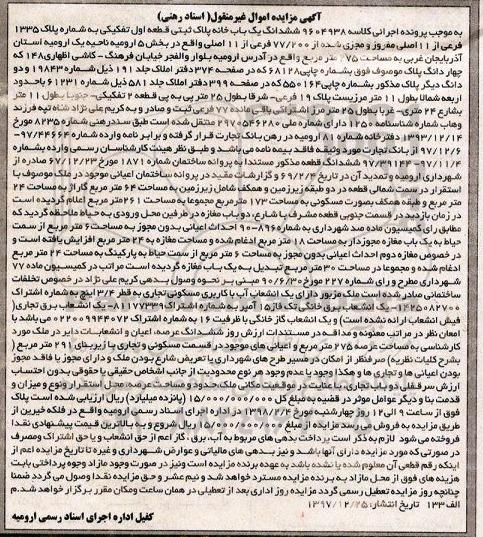 آگهی مزایده اموال غیرمنقول( اسناد رهنی)
به موجب پرونده اجرائی کلاسه ۹۶۰۴۹۳۸ ششدانگ یک باب خانه پلاک ثبتی قطعه اول تفکیکی به شماره پلاک ۱۳۳۵
فرعی از ۱۱ اصلی مفروز و مجزی شده از ۷۷/۲۰۰ فرعی از ۱۱ اصلی واقع در بخش ۵ ارومیه ناحیه یک ارومیه استان
آذربایجان غربی به مساحت ۲۷۵ متر مربع واقع در آدرس ارومیه بلوار والفجر خیابان فرهنگ - کاشی اظهاری ۱۴۸ که
چهار دانگ پلاک موصوف فوق بشماره چاپی ۶۸۱۲۸ که در صفحه ۳۷۴ دفتر املاک جلد ۱۹۱ ذیل شماره ۱۹۸۴۳ و دو
دانگ دیگر پلاک مذکور بشماره چاپی ۵۵۰۱۶۴ که در صفحه ۳۹۹ دفتر املاک جلد ۵۸۱ ذیل شماره ۶۱۲۳۱ با حدود
اربعه شمالا بطول ۱۱ متر مرزیست پلاک ۱۹ فرعی- شرقا بطول ۲۵ متر پی به پی قطعه ۲ تفکیکی- جنوبا بطول ۱۱ متر
بشارع ۲۴ متری- غربا بطول ۲۵ متر مرز اشتراکی باقی مانده ۷۷ فرعی ثبت و صادر و به کریم علی نژاد شاه تپه فرزند
وهاب شماره شناسنامه ۱۲۵۰ دارای شماره ملی ۲۹۷۰۵۴۶۲۸۰ منتقل شده است طبق سند رهنی شماره ۸۲۳۵ مورخ
۱۳۹۳/۱۲/۱۲ دفترخانه شماره ۸۱ ارومیه در رهن بانک تجارت قرار گرفته و برابر نامه وارده شماره ۹۷/۴۴۶۶۴-
۹۷/۱۲/۶ از بانک تجارت مورد وثیقه فاقد بیمه نامه می باشد و طبق نظر هیئت کارشناسان رسمی وارده بشماره
۹۷/۳۹۱۴۴-۹۷/۱۱/۴ ششدانگ قطعه مذکور مستندا به پروانه ساختمان شماره ۱۸۷۱ مورخ ۶۷/۱۲/۲۳ صادره از
شهرداری ارومیه و تمدید آن در تاریخ ۶۹/۲/۴ و گزارشات مقید در پروانه ساختمان اعیانی موجود در ملک موصوف با
استقرار در سمت شمالی قطعه در دو طبقه زیرزمین و همکف شامل زیرزمین به مساحت ۶۴ متر مربع گاراژ به مساحت ۲۴
متر مربع و طبقه همکف بصورت مسکونی به مساحت ۱۷۳ مترمربع مجموعا به مساحت ۲۶۱ متر مربع اعلام گردیده است
در زمان بازدید در قسمت جنوبی قطعه مشرف به شارع، دو باب مغازه در طرفین محل ورودی به حیاط ملاحظه گردید که
مطابق رای کمیسیون ماده صد شهرداری به شماره ۸۹۶-۹۰ احداث اعیانی بدون مجوز به مساحت ۶ متر مربع از سمت
حیاط به یک باب مغازه مجوزدار به مساحت ۱۸ متر مربع ادغام شده و مساحت مغازه به ۲۴ متر مربع افزایش یافته است و
در خصوص مغازه دوم احداث اعیانی بدون مجوز به مساحت ۶ متر مربع از سمت حیاط به پارکینگ به مساحت ۲۴ متر مربع
ادغام شده و مجموعا در مساحت ۳۰ متر مربع تبدیل به یک باب مغازه گردیده است مراتب در کمیسیون ماده ۷۷
شهرداری مطرح و رای شماره ۲۲۷ مورخ ۹۰/۶/۳۰ مبنی بر نحوه وصول بدهی کریم علی نژاد در خصوص تخلفات
ساختمانی صادر شده است ملک مزبور دارای یک انشعاب آب با کاربری مسکونی تجاری به قطر ۳/۴ اینچ به شماره اشتراک
۱۴۲۵۰۸۲۷۰۰- یک انشعاب برق خانگی تک فاز ۲۵ آمپر به شماره اشتراک ۸۱۱۷۷۳۳۹- یک انشعاب برق تجاری(
فیش انشعاب ارائه نشده است) و یک انشعاب گاز خانگی با ظرفیت ۱۶ به شماره اشتراک ۰۲۲۰۰۹۹۴۴۰۷۲ می باشد با
امعان نظر در مراتب معنونه و مداقه در مستندات ارزش روز ششدانگ عرصه، اعیان و انشعابات دایر در ملک مورد
کارشناسی به مساحت عرصه ۲۷۵ متر مربع و اعیانی های موجود در قسمت مسکونی و تجاری با زیربنای ۲۹۱ متر مربع (
بشرح کلیات نظریه) صرفنظر از امکان در مسیر طرح های شهرداری یا تعریض شارع بودن ملک و دارای مجوز یا فاقد مجوز
بودن اعیانی ها و تجاری ها و هکذا وجود یا عدم وجود هر نوع محدودیت از جانب اشخاص حقیقی یا حقوقی بدون احتساب
ارزش سرقفلی دو باب تجاری، با عنایت در موقعیت مکانی ملک حدود و مساحت عرصه، محل استقرار و نوع و میزان و
قدمت بنا و دیگر عوامل موثر در قضیه به مبلغ کل ۱۵/۰۰۰/۰۰۰/۰۰۰ ریال (پانزده میلیارد) ریال ارزیابی شده است پلاک
فوق از ساعت ۹ الی ۱۲ روز چهارشنبه مورخ ۱۳۹۸/۲/۴ در اداره اجرای اسناد رسمی ارومیه واقع در فلکه خیرین از
طریق مزایده به فروش می رسد مزایده از مبلغ ۱۵/۰۰۰/۰۰۰/۰۰۰ ریال شروع و به بالاترین قیمت پیشنهادی نقدا
فروخته می شود لازم به ذکر است پرداخت بدهی های مربوط به آب، برق، گاز اعم از حق انشعاب و یا حق اشتراک ومصرف
در صورتی که مورد مزایده دارای آنها باشد و نیز بدهی های مالیاتی و عوارض شهرداری و غیره تا تاریخ مزایده اعم از
اینکه رقم قطعی آن معلوم شده یا نشده باشد به عهده برنده مزایده است ونیز در صورت وجود مازاد وجوه پرداختی بابت
هزینه های فوق از محل مازاد به برنده مزایده مسترد خواهد شد و نیم عشر و حق مزایده نقدا وصول می گردد ضمنا
چنانچه روز مزایده تعطیل رسمی گردد مزایده روز اداری بعد از تعطیلی در همان ساعت ومکان مقرر برگزار خواهد شد.م
الف ۱۳۳ تاریخ انتشار: ۱۳۹۷/۱۲/۲۵
کفیل اداره اجرای اسناد رسمی ارومیه